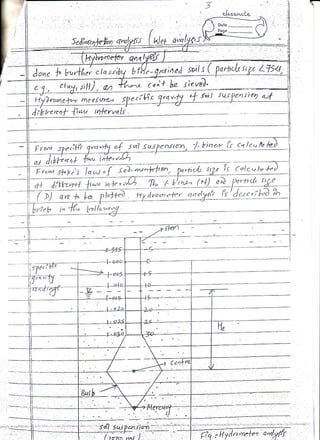 3
classmate
Date
Page
Sedimentation analysis (Wet analysis)
(Hydrometer analysis)
- done to further classify fine-grained soils (particle size < 75µ,
eg, clay, silt), as these can't be sieved.
- Hydrometer measures specific gravity of soil suspension at
different time intervals
- From specific gravity of soil suspension, % finer is calculated
at different time intervals
- From stoke's law of sedimentation, particle size is calculated
at different time intervals. The % finer (N) and particle size
(D) are to be plotted. Hydrometer analysis is described in
brief in the following.
stem
0.995
-5
1.000
0
specific
gravity
readings
1.005
+5
1.010
10
1.015
15
1.020
20
1.025
25
1.030
30
He
Centre
Bulb
Mercury
soil suspension
(1000 ml)
Fig - Hydrometer analysis